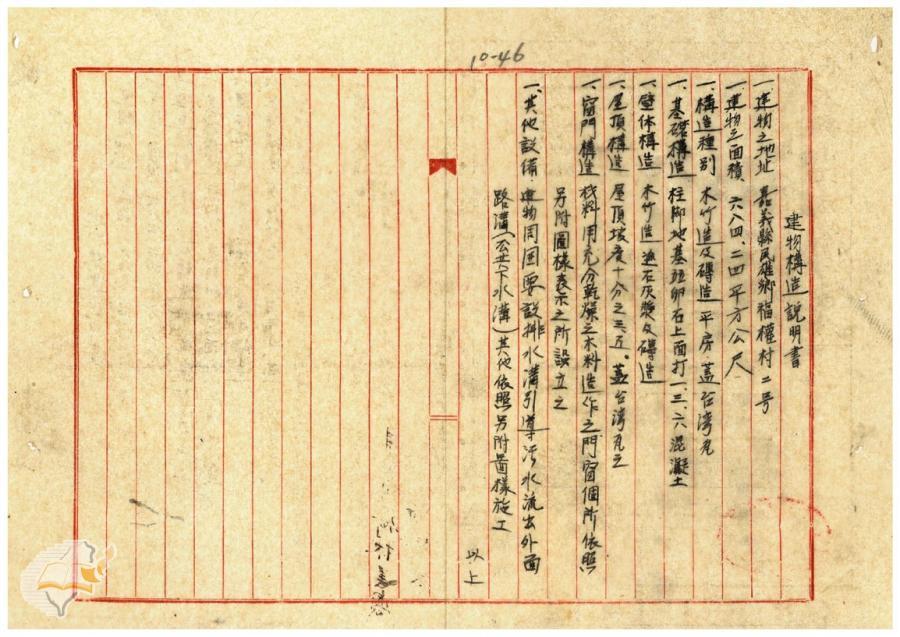 10-46
建物構造説明書
一、建物之地址 嘉義縣民雄鄉福權村二号
一、建物之面積 六八四、二四平方公尺
一、構造種别 木竹造及磚造平房蓋台湾瓦
一、基礎構造 柱脚地基砠卵石上面打一、三、六混凝土
一、壁体構造 木竹造塗石灰漿及磚造
一、屋頂構造 屋頂坡度十分之三、五。蓋台湾瓦之
一、窗門構造 材料用充分乾燥之木料造作之門窗個所依照
另附圖樣表示之所設立之
一、其他設備 建物周囲要設排水溝引導污水流出外面
路溝（公共下水溝）其他依照另附啚樣施工
以上